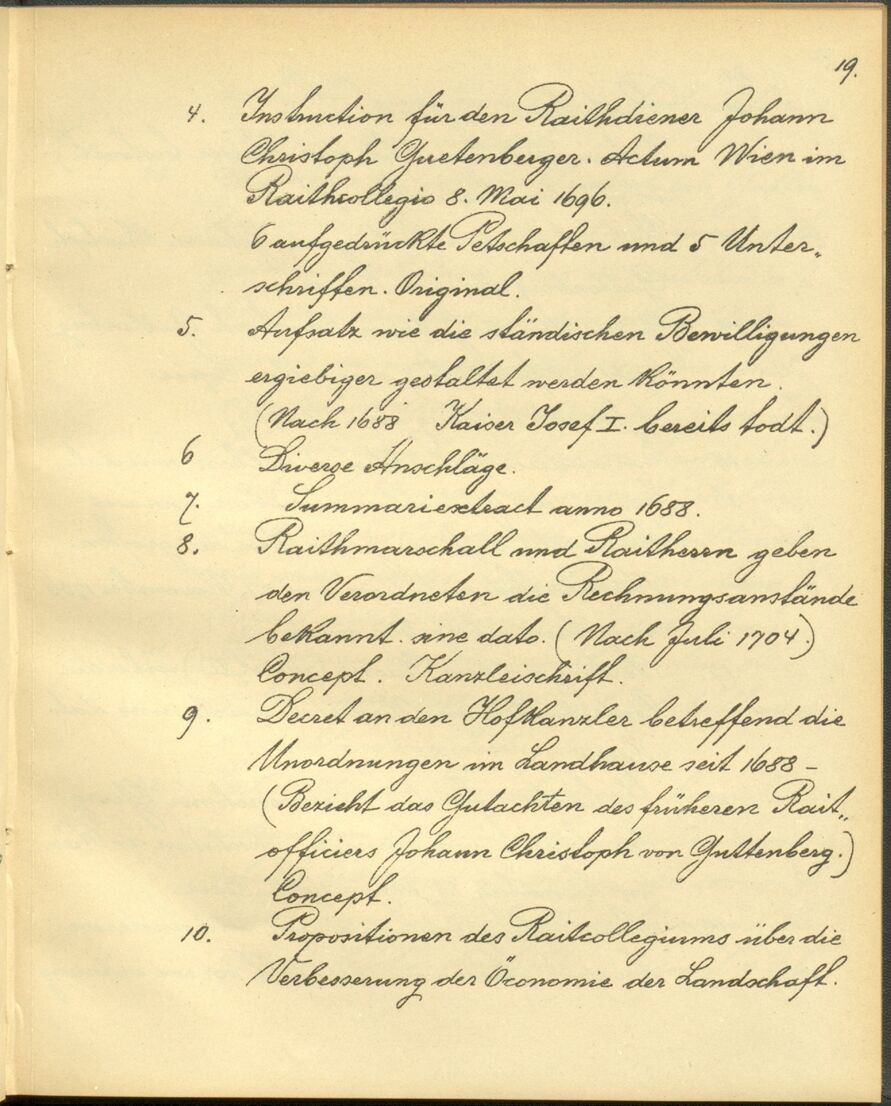 19.
4. Instruction für den Raithdiener Johann
Christoph Guetenberger. Actum Wien im
Raithcollegio 8. Mai 1696.
6 aufgedrückte Petschaften und 5 Unter„
schriften. Original.
5. Aufsatz wie die ständischen Bewilligungen
ergiebiger gestaltet werden könnten.
(Nach 1688 Kaiser Josef I. bereits todt.)
6 Diverse Anschläge.
7. Summariextract anno 1688.
8. Raithmarschall und Raitherrn geben
den Verordneten die Rechnungsanstände
bekannt. sine dato. (Nach Juli 1704)
Concept. Kanzleischrift.
9. Decret an den Hofkanzler betreffend die
Unordnungen im Landhause seit 1688 –
(Bezieht das Gutachten des früheren Rait„
officiers Johann Christoph von Guttenberg.)
Concept.
10. Propositionen des Raitcollegiums über die
Verbesserung der Öconomie der Landschaft.